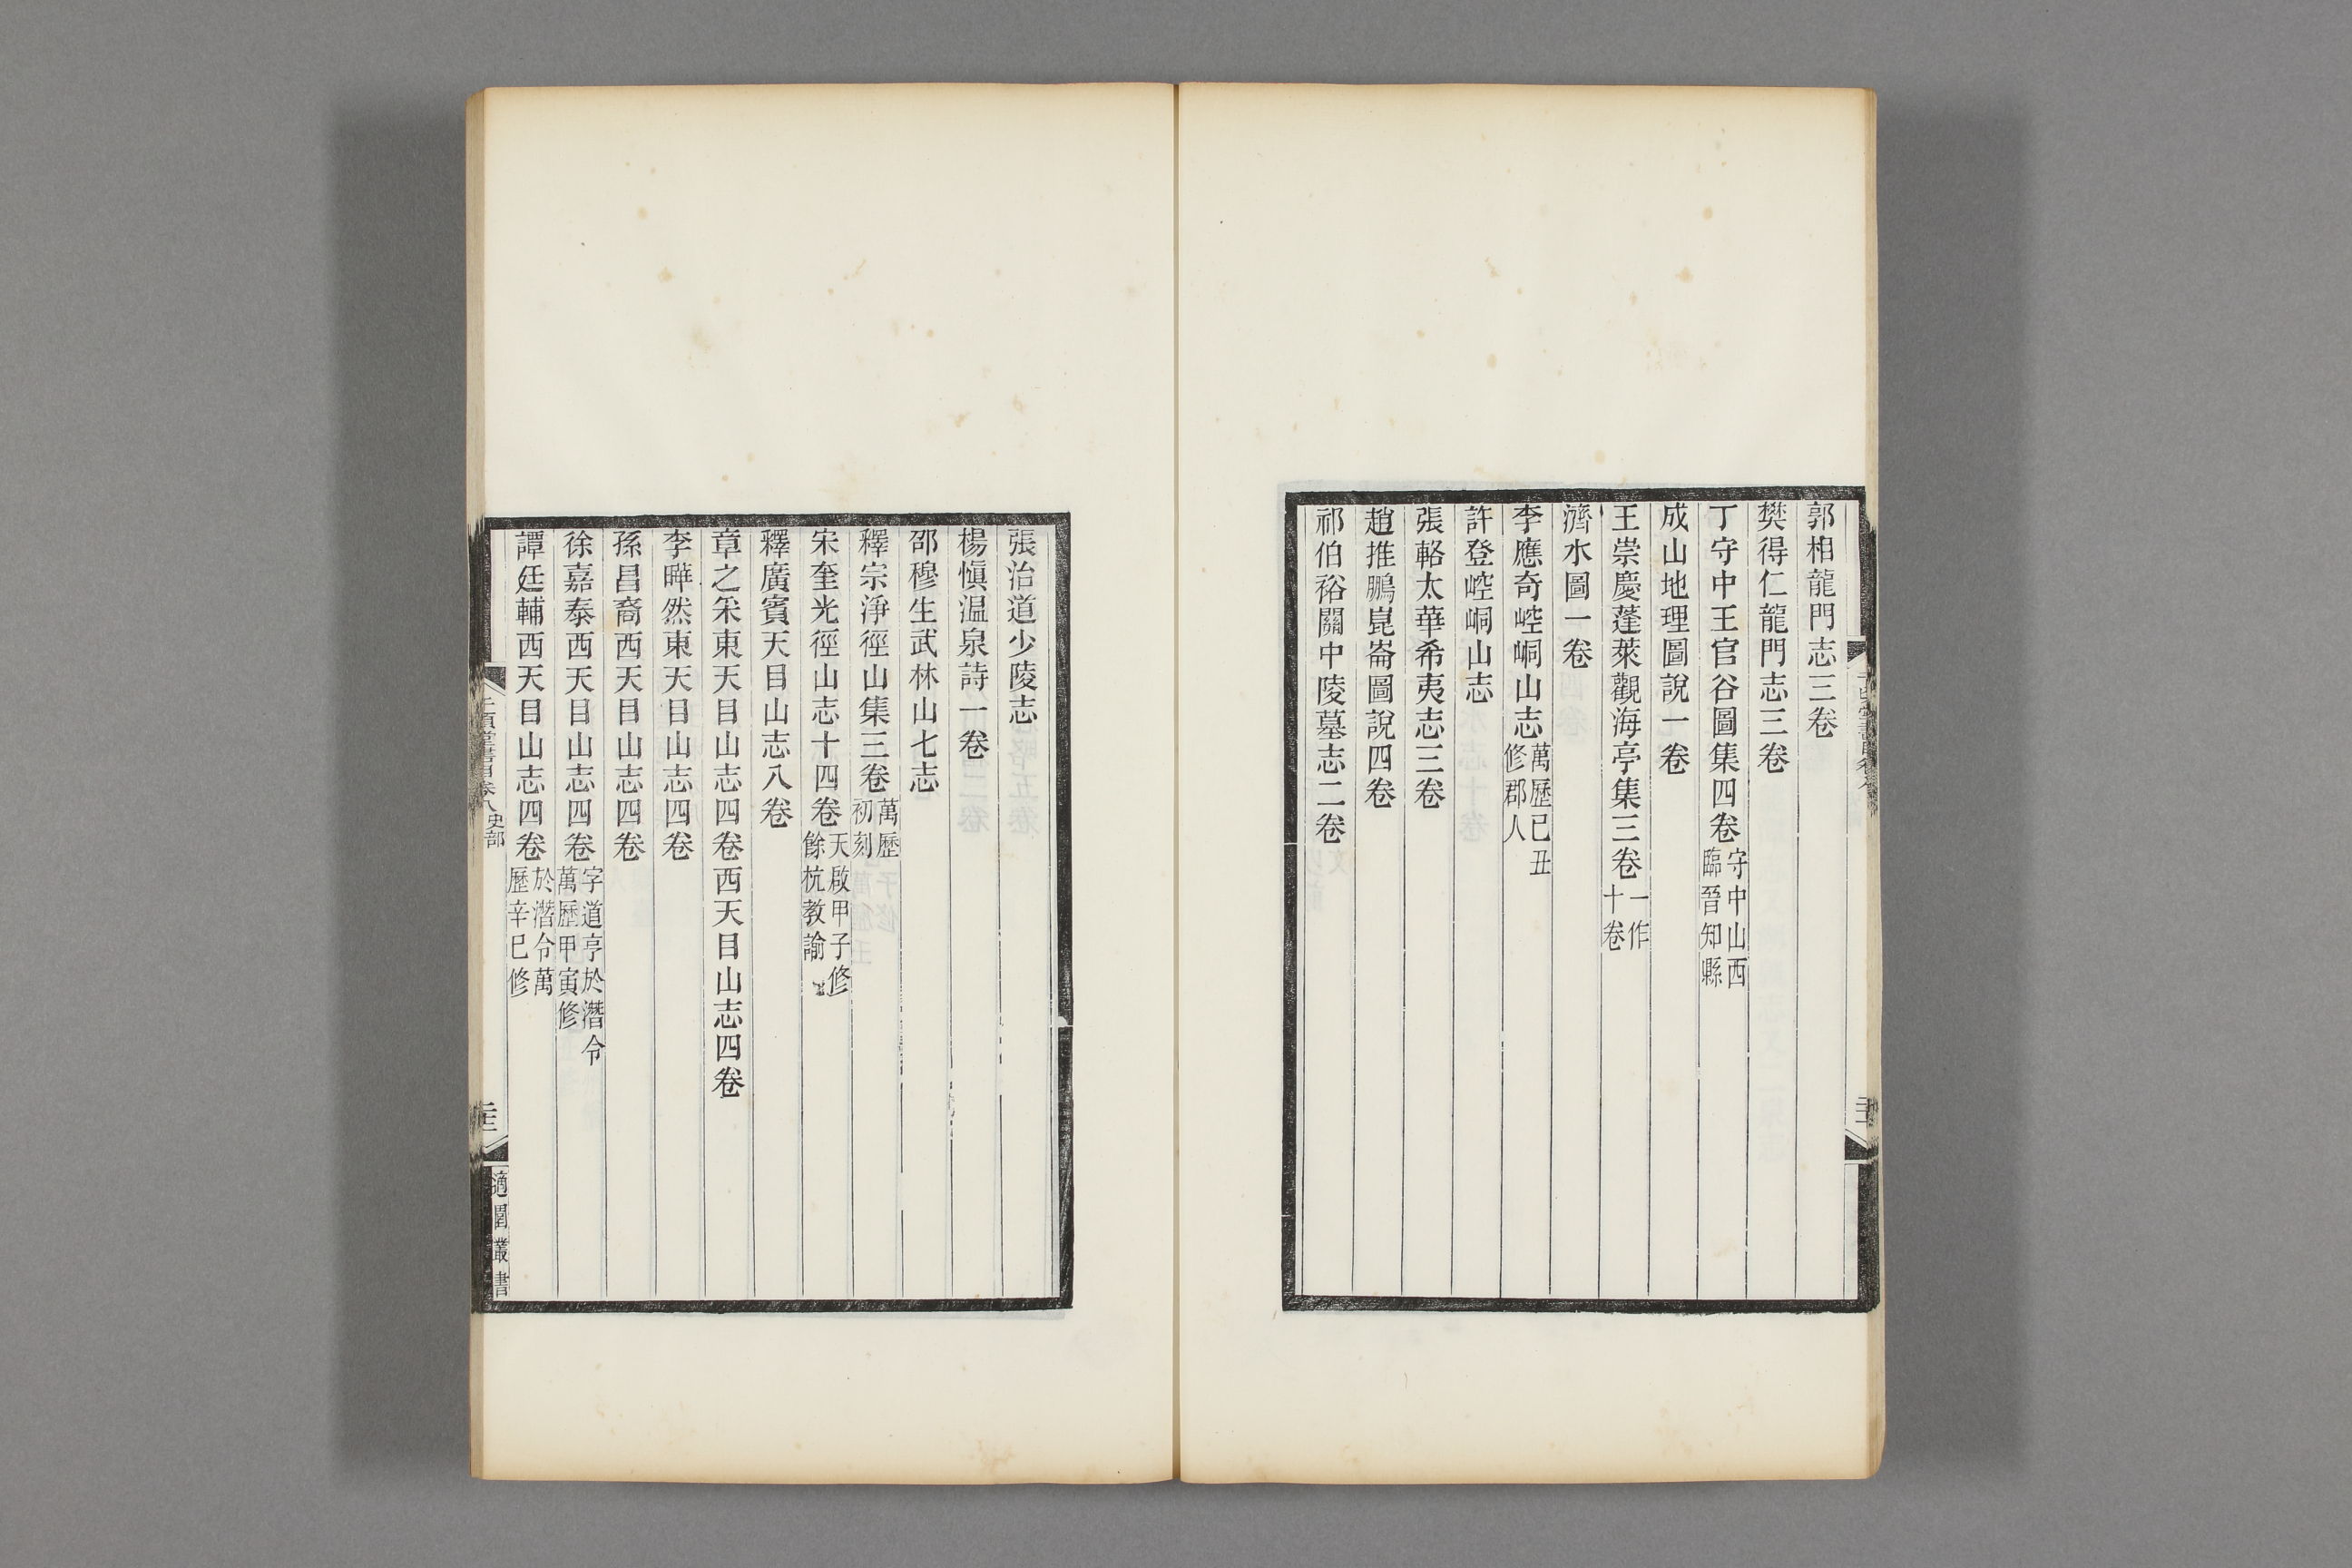 郭相龍門志三卷
樊得仁龍門志三卷
丁守中王官谷圖集四卷守中山西臨晉知縣
成山地理圖說一卷
王崇慶蓬萊觀海亭集三卷一作十卷
濟水圖一卷
李應奇崆峒山志萬歷己丑修郡人
許登崆峒山志
張輅太華希夷志三卷
趙推鵬崑崙圖說四卷
祁伯裕關中陵墓志二卷
張治道少陵志
楊愼温泉詩一卷
邵穆生武林山七志
釋宗淨徑山集三卷萬歷初刻
宋奎光徑山志十四卷天啟甲子修餘杭教諭
釋廣賓天目山志八卷
章之采東天目山志四卷西天目山志四卷
李曄然東天目山志四卷
孫昌裔西天目山志四卷
徐嘉泰西天目山志四卷字道亨於潛令萬歷甲寅修
譚廷輔西天目山志四卷於潛令萬歷辛巳修
千頃堂書目卷八史部
適園叢書